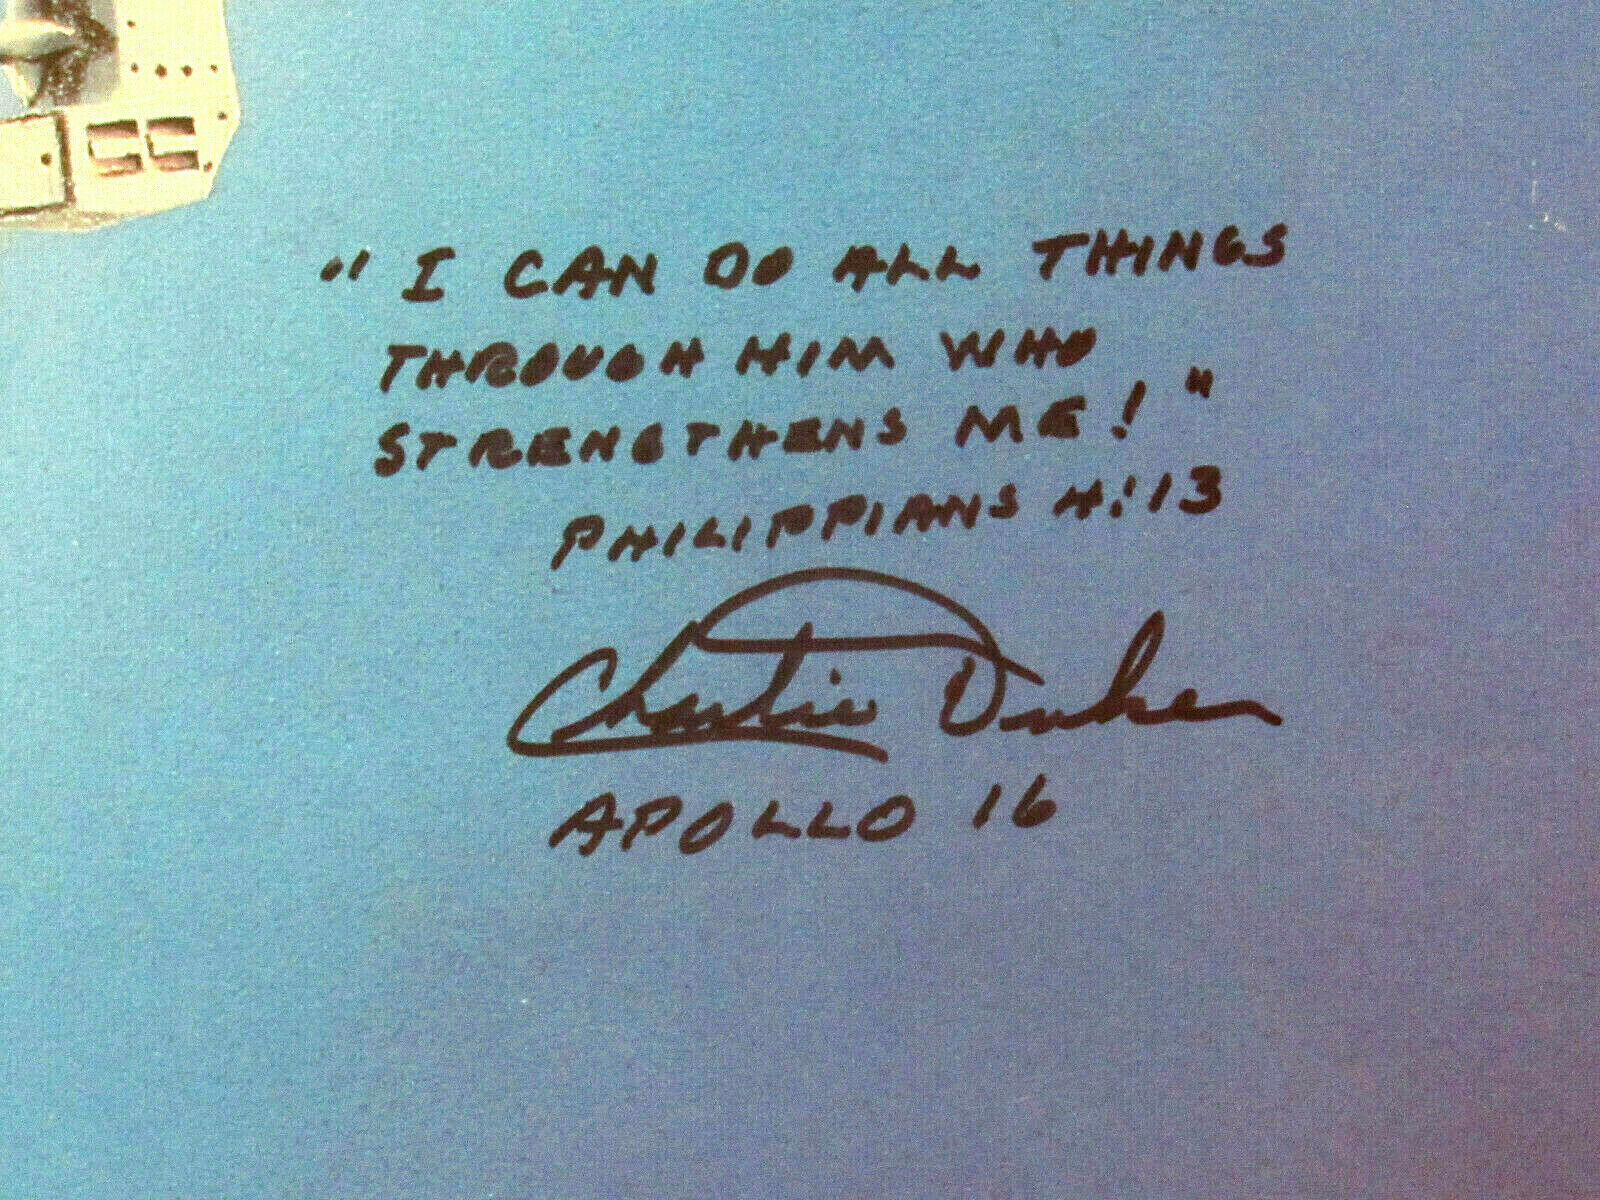 " I CAN DO ALL THINGS
THROUGH HIM WHO
STRENGTHENS ME! "
PHILIPPIANS 4:13
Charlie Duke
APOLLO 16